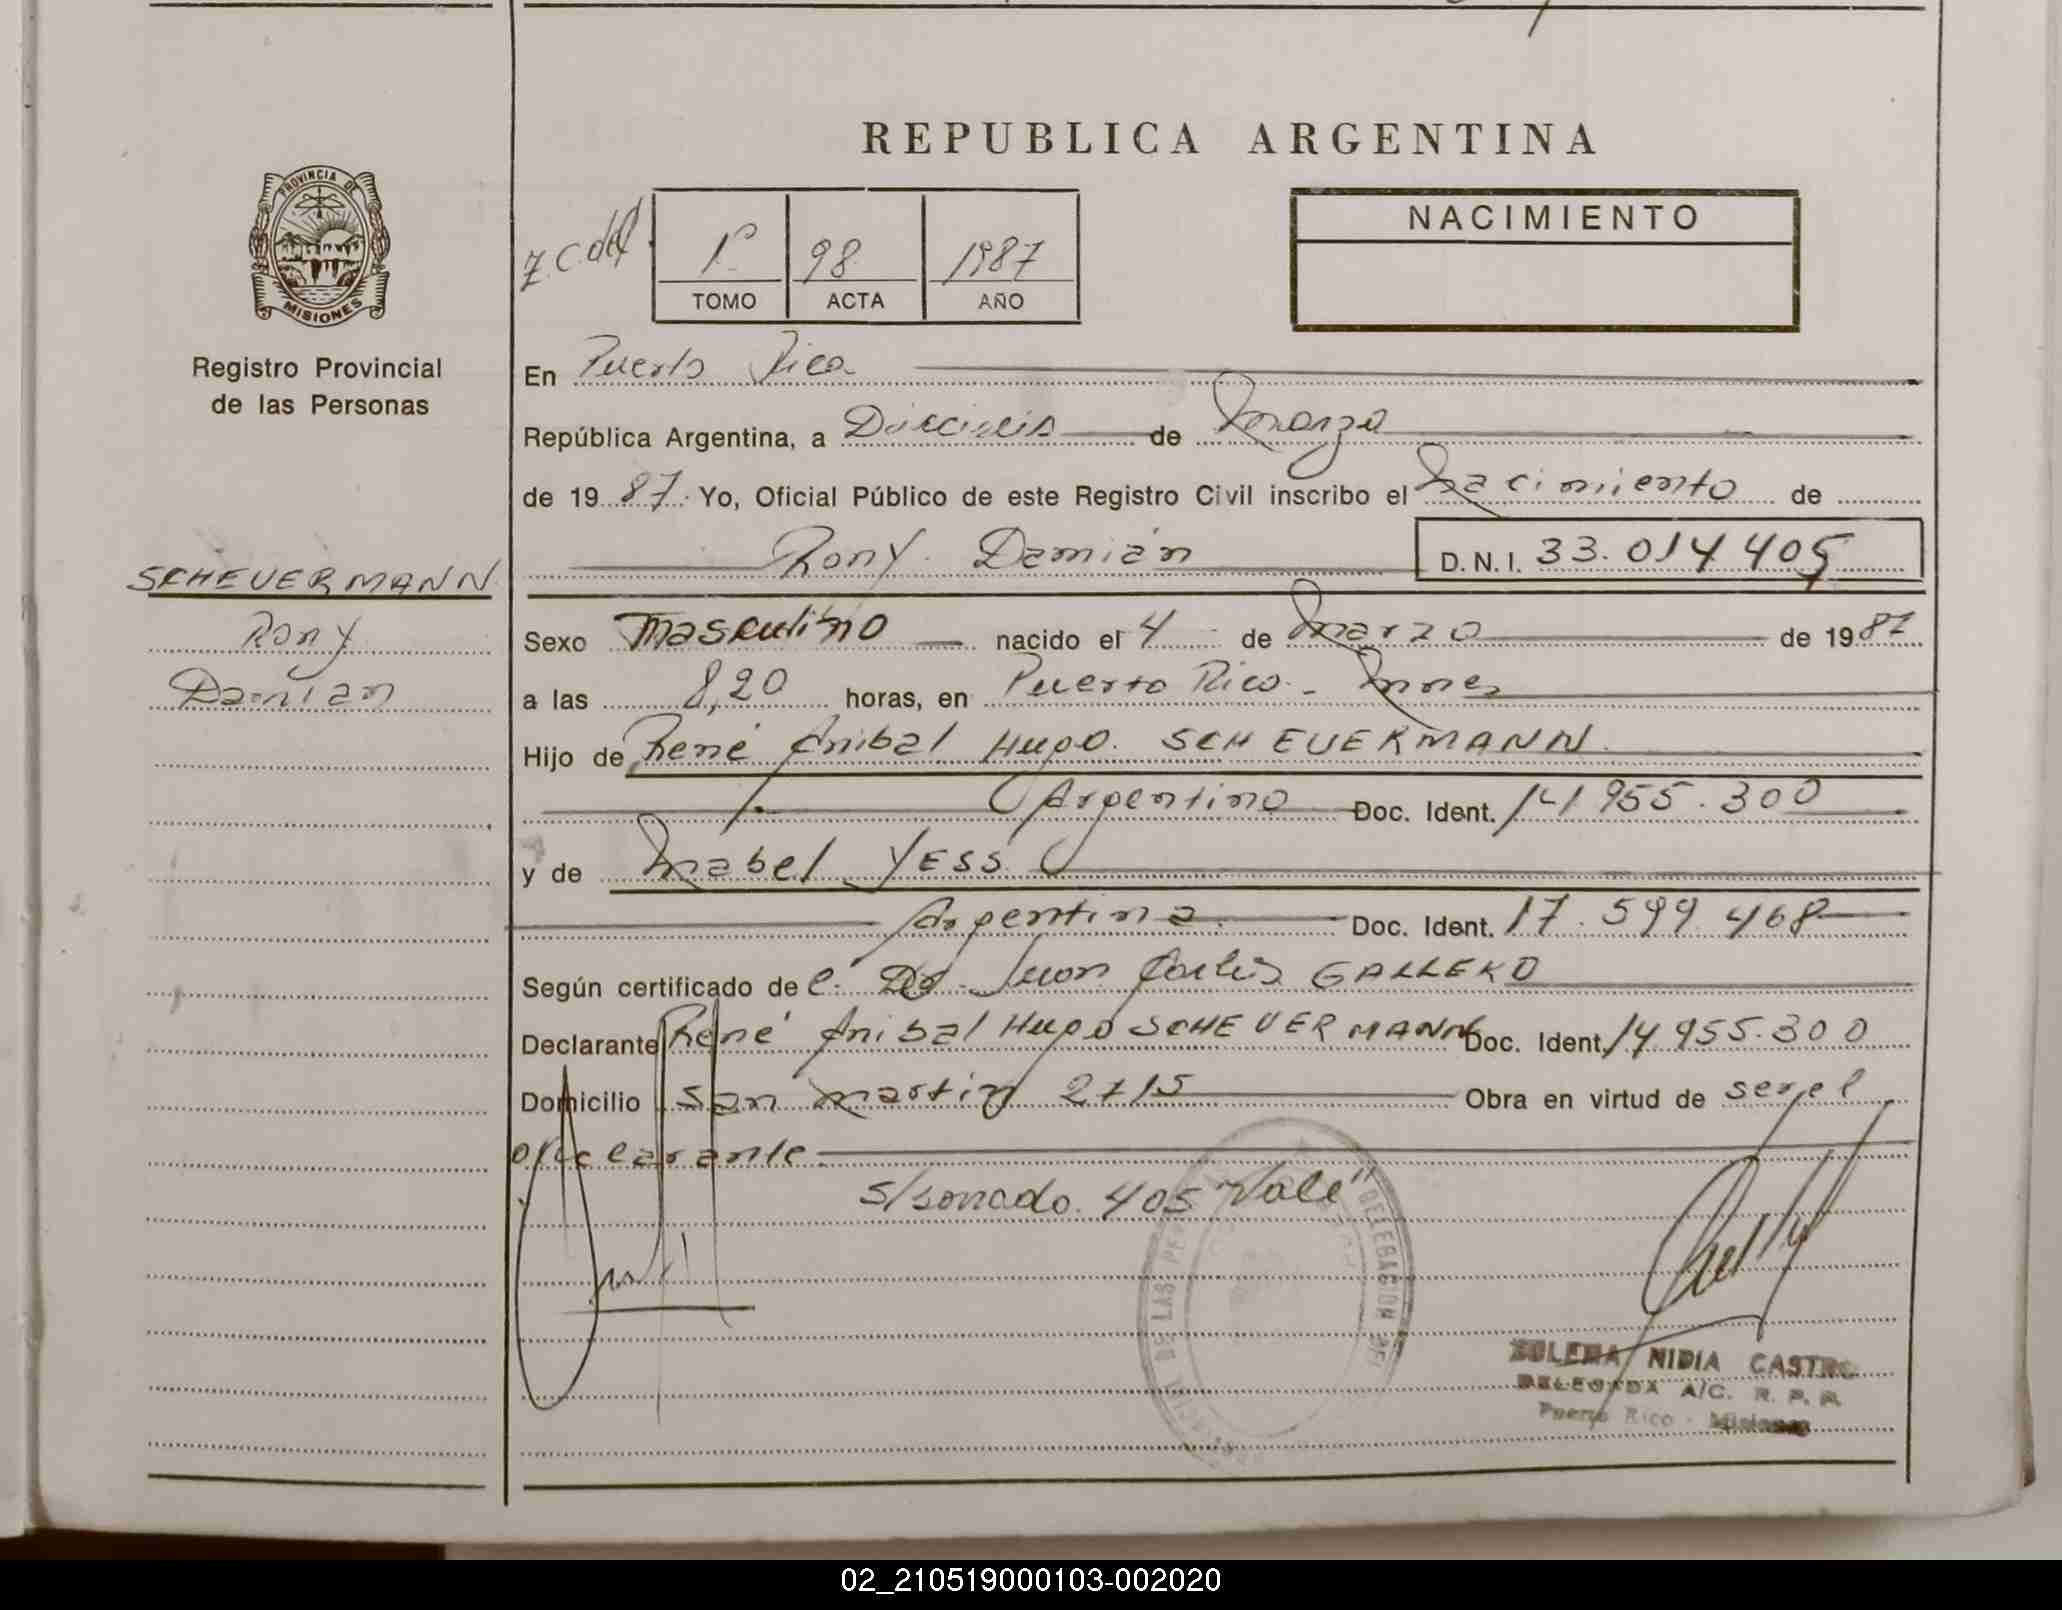 REPUBLICA ARGENTINA
PROVINCIA DE
MISIONES
Registro Provincial
de las Personas
1º 98 1987
TOMO ACTA AÑO
NACIMIENTO
En Puerto Rico
República Argentina, a Dieciseis de Marzo
de 19 87 Yo, Oficial Público de este Registro Civil inscribo el Nacimiento de
Rony Damián D.N.I. 33.014405
SCHEUERMANN
Rony
Damián
Sexo Masculino nacido el 4 de Marzo de 1987
a las 8,20 horas, en Puerto Rico - Mnes
Hijo de René Anibal Hugo SCHEUERMANN
Argentino Doc. Ident. 14955.300
y de Mabel YESS
Argentina Doc. Ident. 17.599.468
Según certificado del Dr Juan Carlos GALLERO
Declarante René Anibal Hugo SCHEUERMANN Doc. Ident. 14955.300
Domicilio San Martin 2715 Obra en virtud de ser el
declarante
405 "Vale"
DELEGACION DE
DE LAS PE
ZULEMA NIDIA CASTRO
DELEGADA A/C. R. P. P.
Puerto Rico - Misiones
02_210519000103-002020